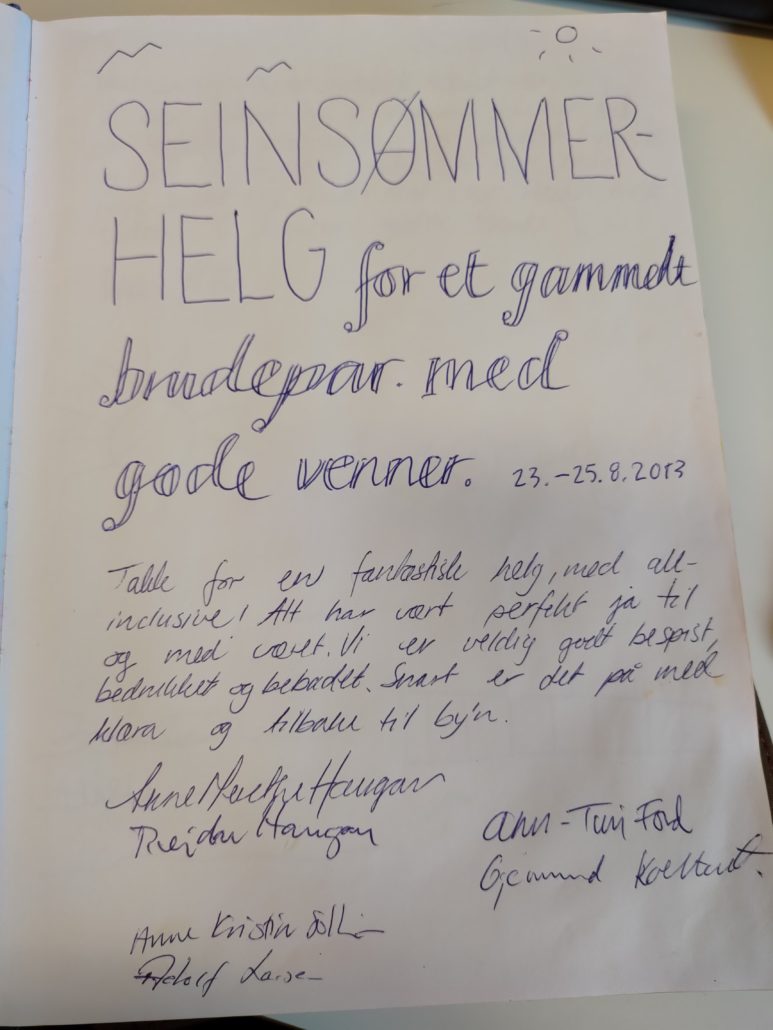 SEINSØMMER-
HELG for et gammelt
brudepar. med
gode venner. 23.-25.8.2013
Takk for en fantastisk helg, med all-
inclusive! Alt har vært perfekt ja til
og med været. Vi er veldig godt bespist,
bedrukket og bebadet. Snart er det på med
klæra og tilbake til by'n.
Anne Merethe Haugan
Haugan
Ann-Turi Ford
Gjemund
Anne Kristin
Adolf Larsen